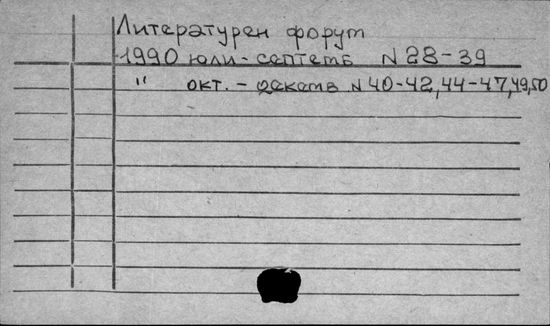 Литературен форум
1990 юли - септемв N 28-39
" окт. - декемв N 40-42, 44-47, 49, 50